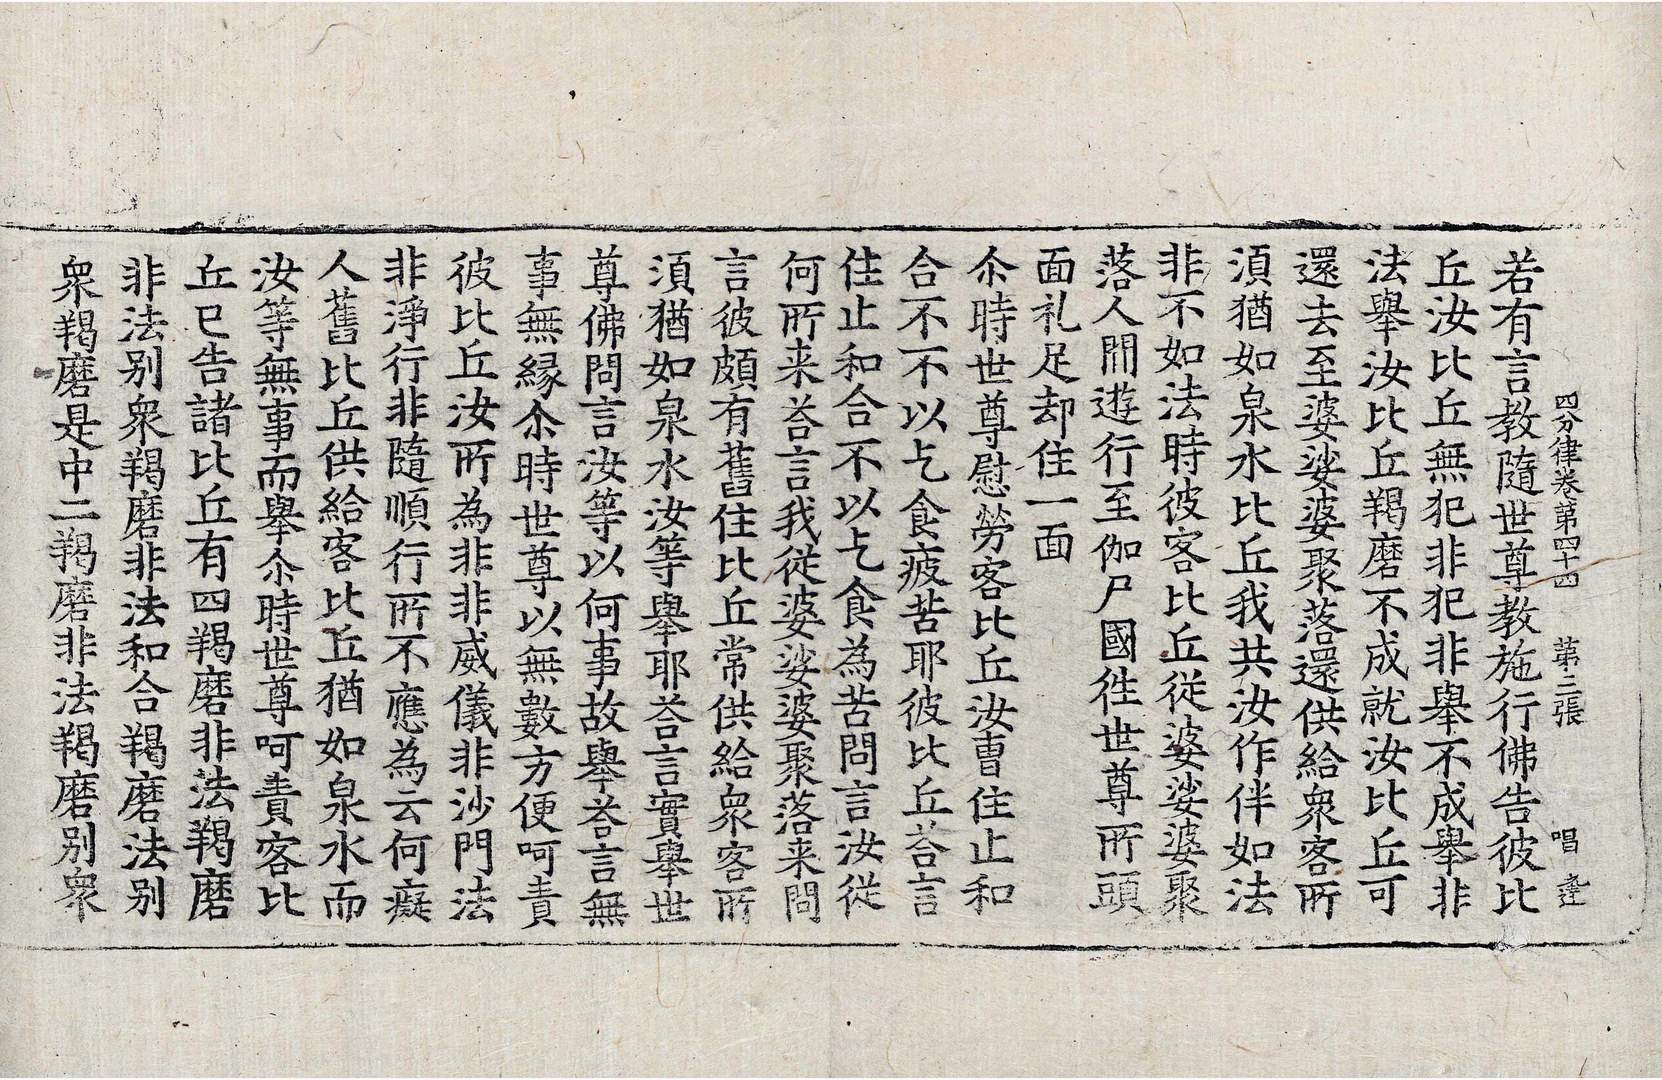 四分律卷第四十四　第三張　唱　達
若有言教隨世尊教施行佛告彼比
丘汝比丘無犯非犯非舉不成舉非
法舉汝比丘羯磨不成就汝比丘可
還去至婆娑婆聚落還供給衆客所
湏猶如泉水比丘我共汝作伴如法
非不如法時彼客比丘従婆娑婆聚
落人閒遊行至伽尸國徃世尊所頭
面礼足却住一面
尒時世尊慰勞客比丘汝曹住止和
合不不以乞食疲苦耶彼比丘荅言
住止和合不以乞食為苦問言汝従
何所来荅言我従婆娑婆聚落来問
言彼頗有舊住比丘常供給衆客所
湏猶如泉水汝等舉耶荅言實舉世
尊佛問言汝等以何事故舉荅言無
事無縁尒時世尊以無數方便呵責
彼比丘汝所為非非威儀非沙門法
非淨行非隨順行所不應為云何癡
人舊比丘供給客比丘猶如泉水而
汝等無事而舉尒時世尊呵責客比
丘已告諸比丘有四羯磨非法羯磨
非法别衆羯磨非法和合羯磨法别
衆羯磨是中二羯磨非法羯磨别衆